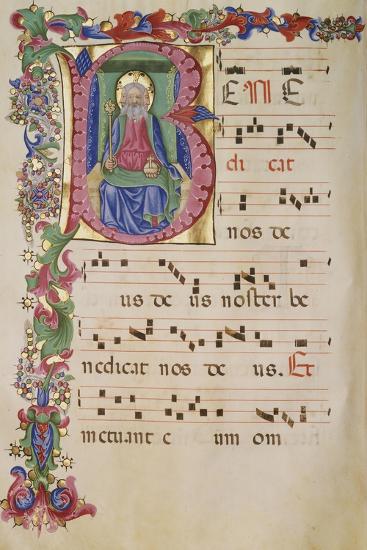 BENE
dicat
nos de
us de us noster be
nedicat nos de us. Et
metuant e um om